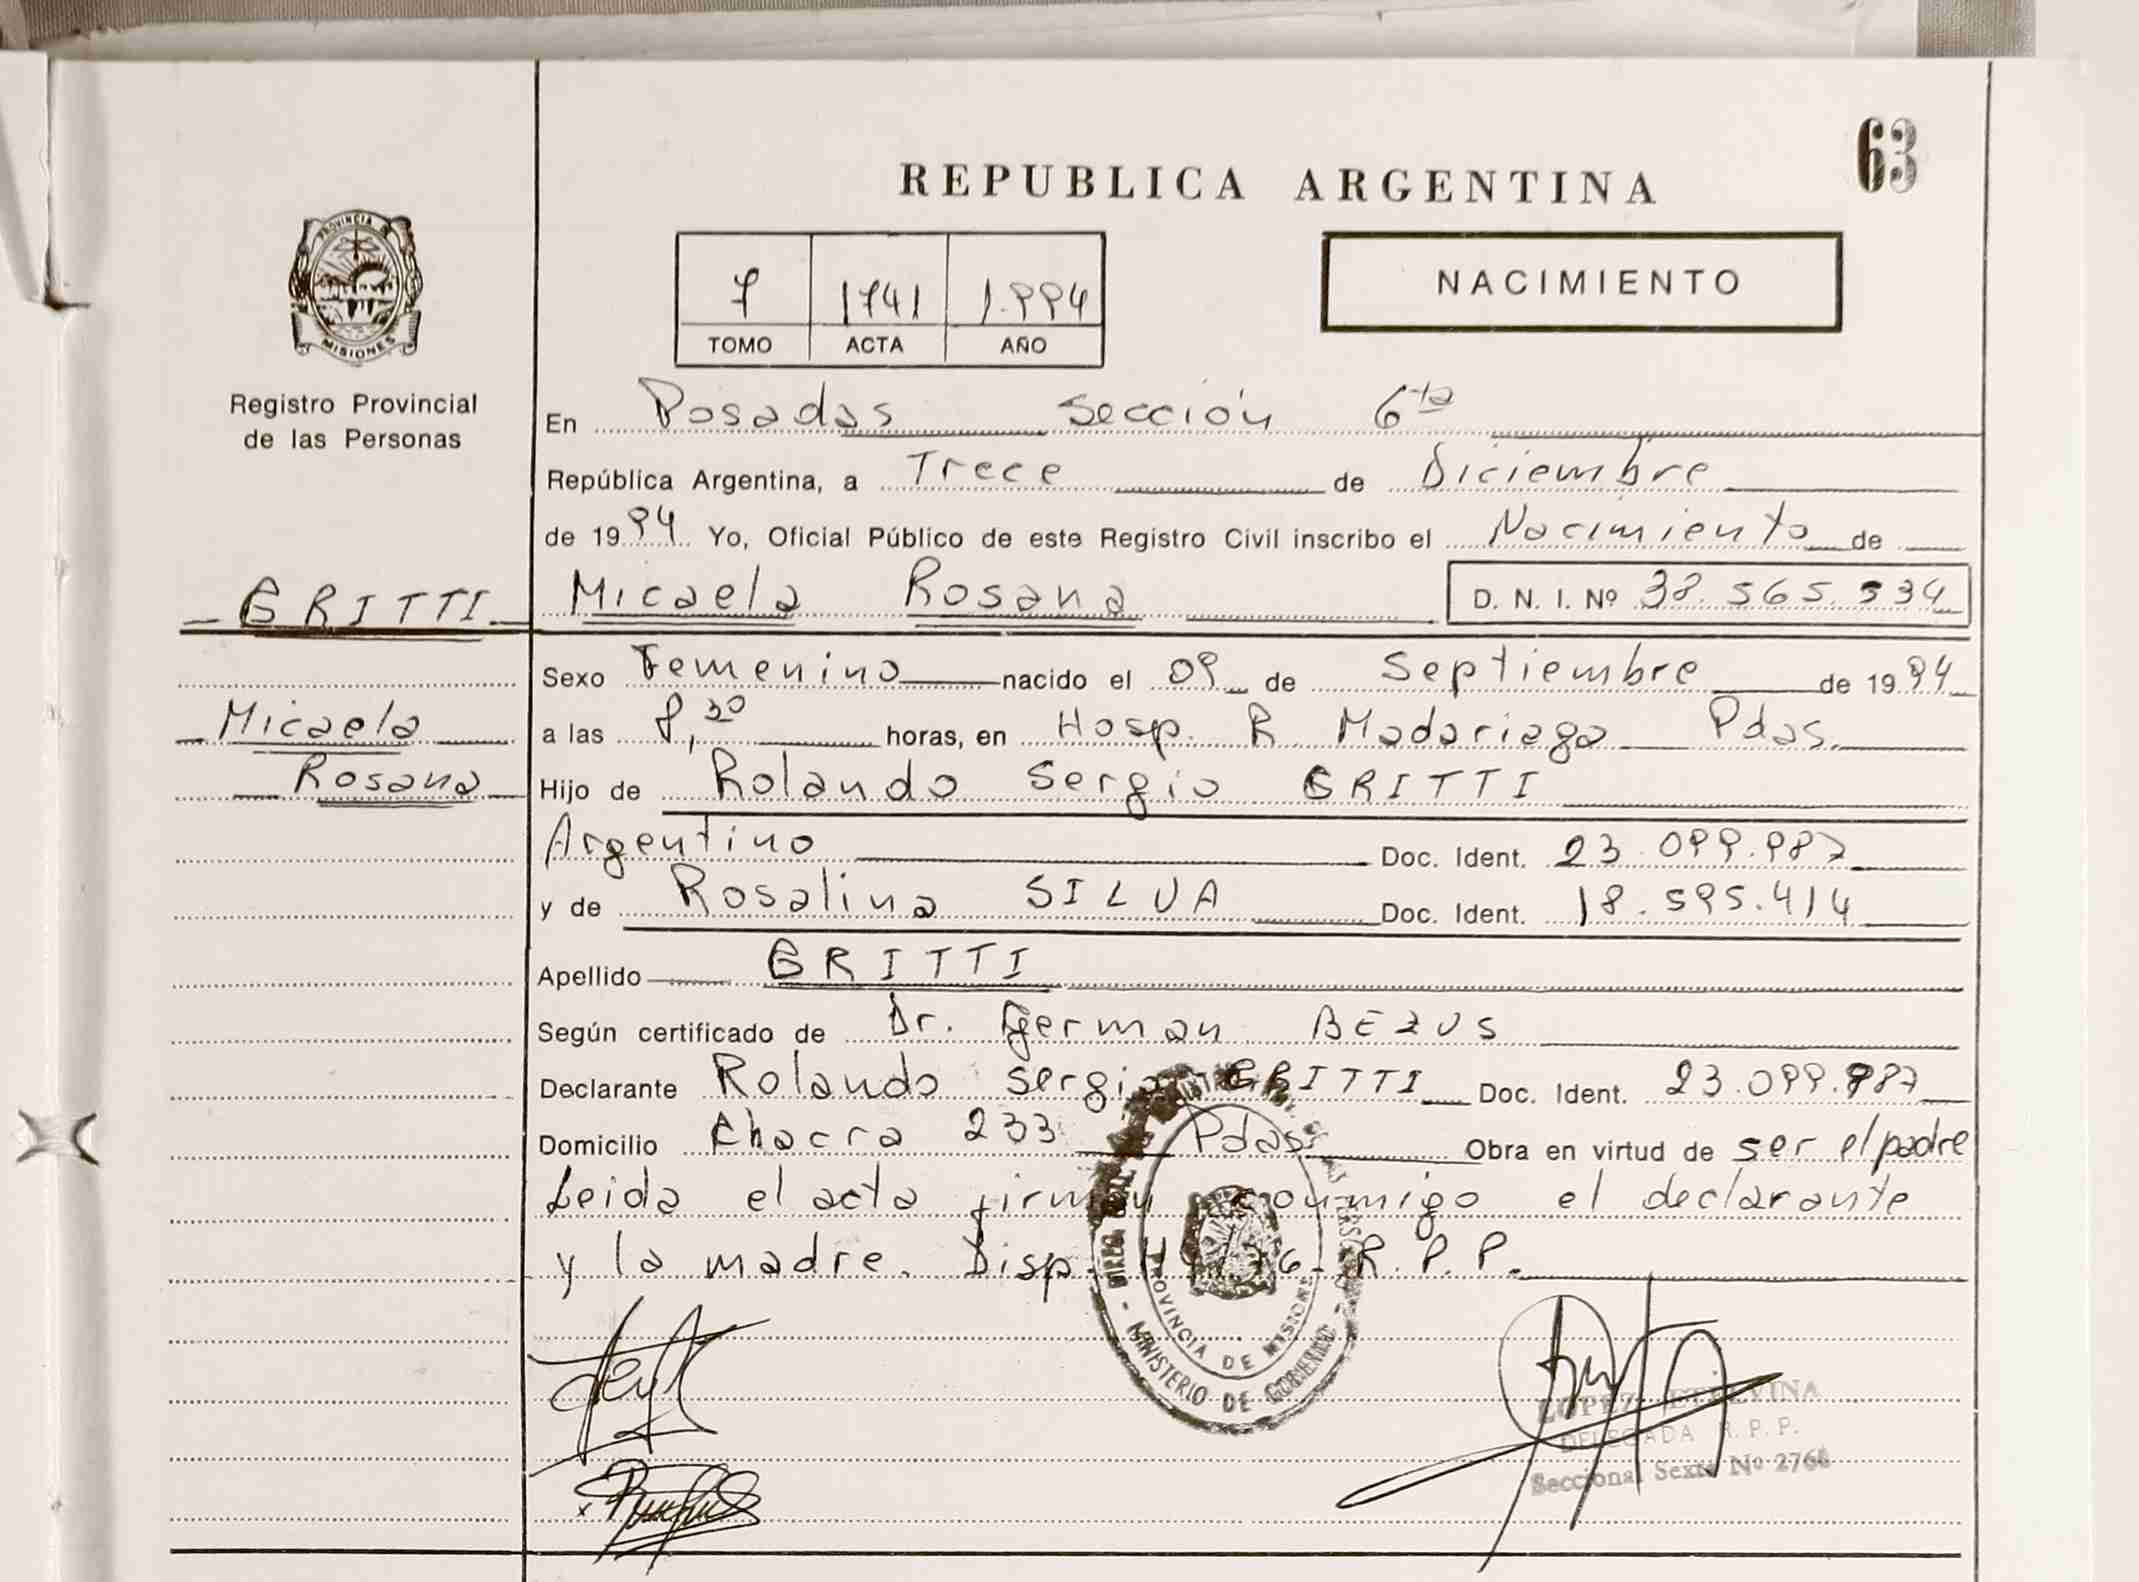 63
REPUBLICA ARGENTINA
PROVINCIA DE
MISIONES
Registro Provincial
de las Personas
7 1741 1.994
TOMO ACTA AÑO
NACIMIENTO
En Posadas Sección 6ta
República Argentina, a Trece de Diciembre
de 1994 Yo, Oficial Público de este Registro Civil inscribo el Nacimiento de
GRITTI Micaela Rosana D. N. I. Nº 38.565.534
Sexo Femenino nacido el 09 de Septiembre de 1994
Micaela a las 8,30 horas, en Hosp. R Madariaga Pdas.
Rosana Hijo de Rolando Sergio GRITTI
Argentino Doc. Ident. 23.099.987
y de Rosalina SILVA Doc. Ident. 18.595.414
Apellido GRITTI
Según certificado de Dr. German BEZUS
Declarante Rolando Sergio GRITTI Doc. Ident. 23.099.987
Domicilio Chacra 233 Pdas. Obra en virtud de ser el padre
Leida el acta firman conmigo el declarante
y la madre. Disp. R.P.P.
PROVINCIA DE MISIONES
MINISTERIO DE GOBIERNO
LOPEZ ETELVINA
DELEGADA R. P. P.
Seccional Sexta Nº 2766